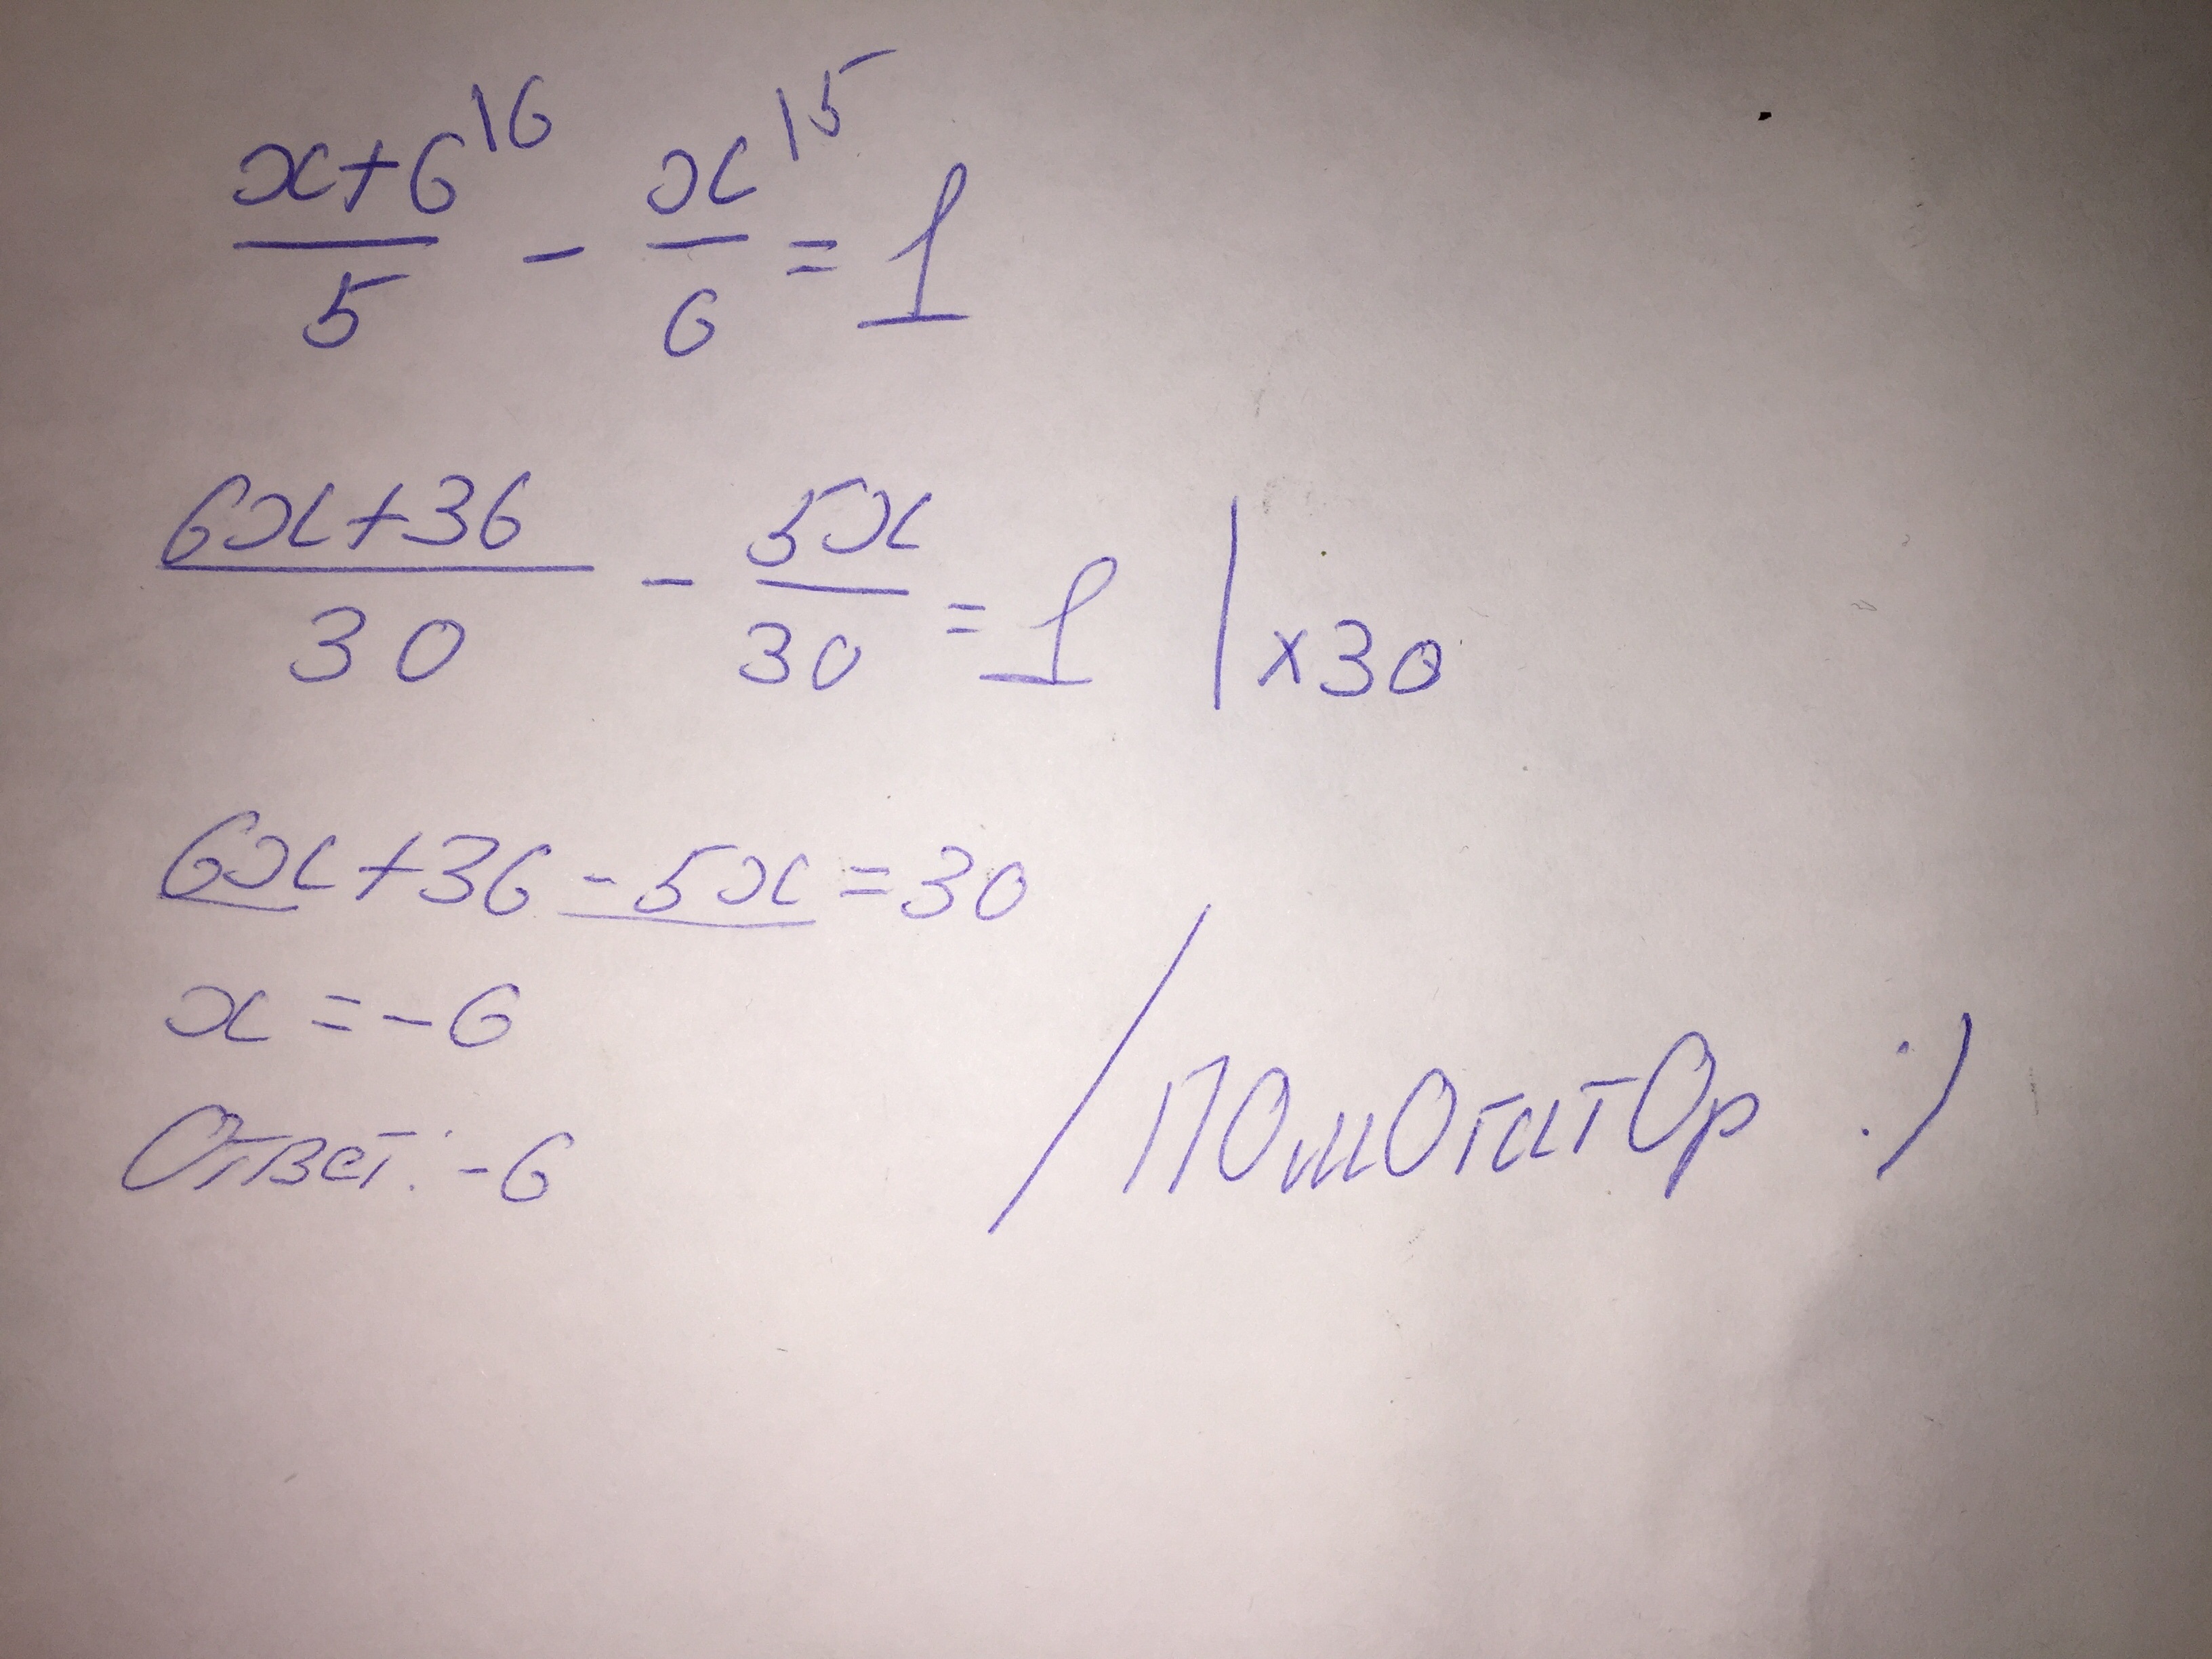 x+6^{\6}/5 - x^{\5}/6 = 1
6x+36/30 - 5x/30 = 1 | ×30
6x+36-5x=30
x=-6
Ответ: -6
/ПОмОгатОр :)